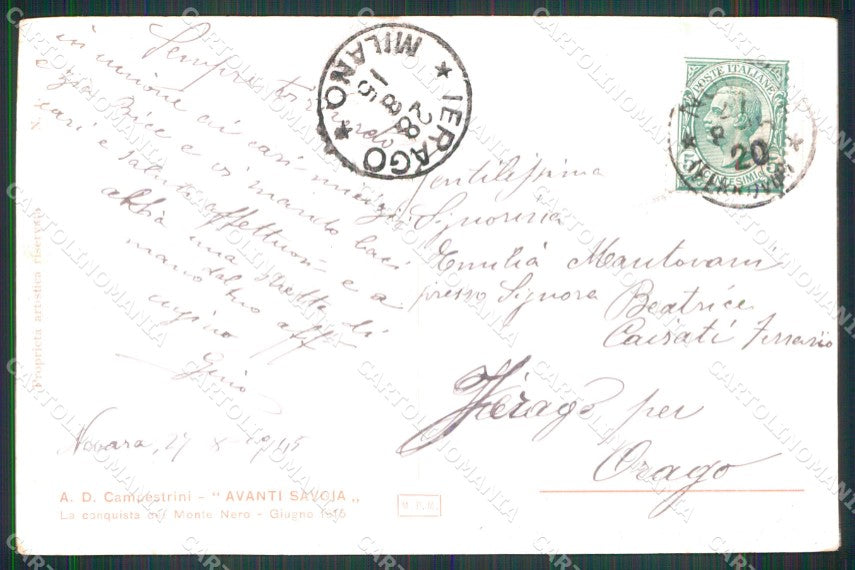 Sempre
in unione ai cari
e zia Bice e vi mando baci
cari e saluti affettuosi e a
abbia una stretta di
mano dal tuo aff
cugino
Gino
Novara, 27 8 1915
A. D. Campestrini - " AVANTI SAVOIA „
La conquista del Monte Nero - Giugno 1915
Proprietà artistica riservata
IERAGO
MILANO
28 8 15
POSTE ITALIANE
CENTESIMI
20
Gentilissima
Signorina
Emilia Mantovani
presso Signora Beatrice
Casati Ferrario
Jerago per
Orago
CARTOLINOMANIA